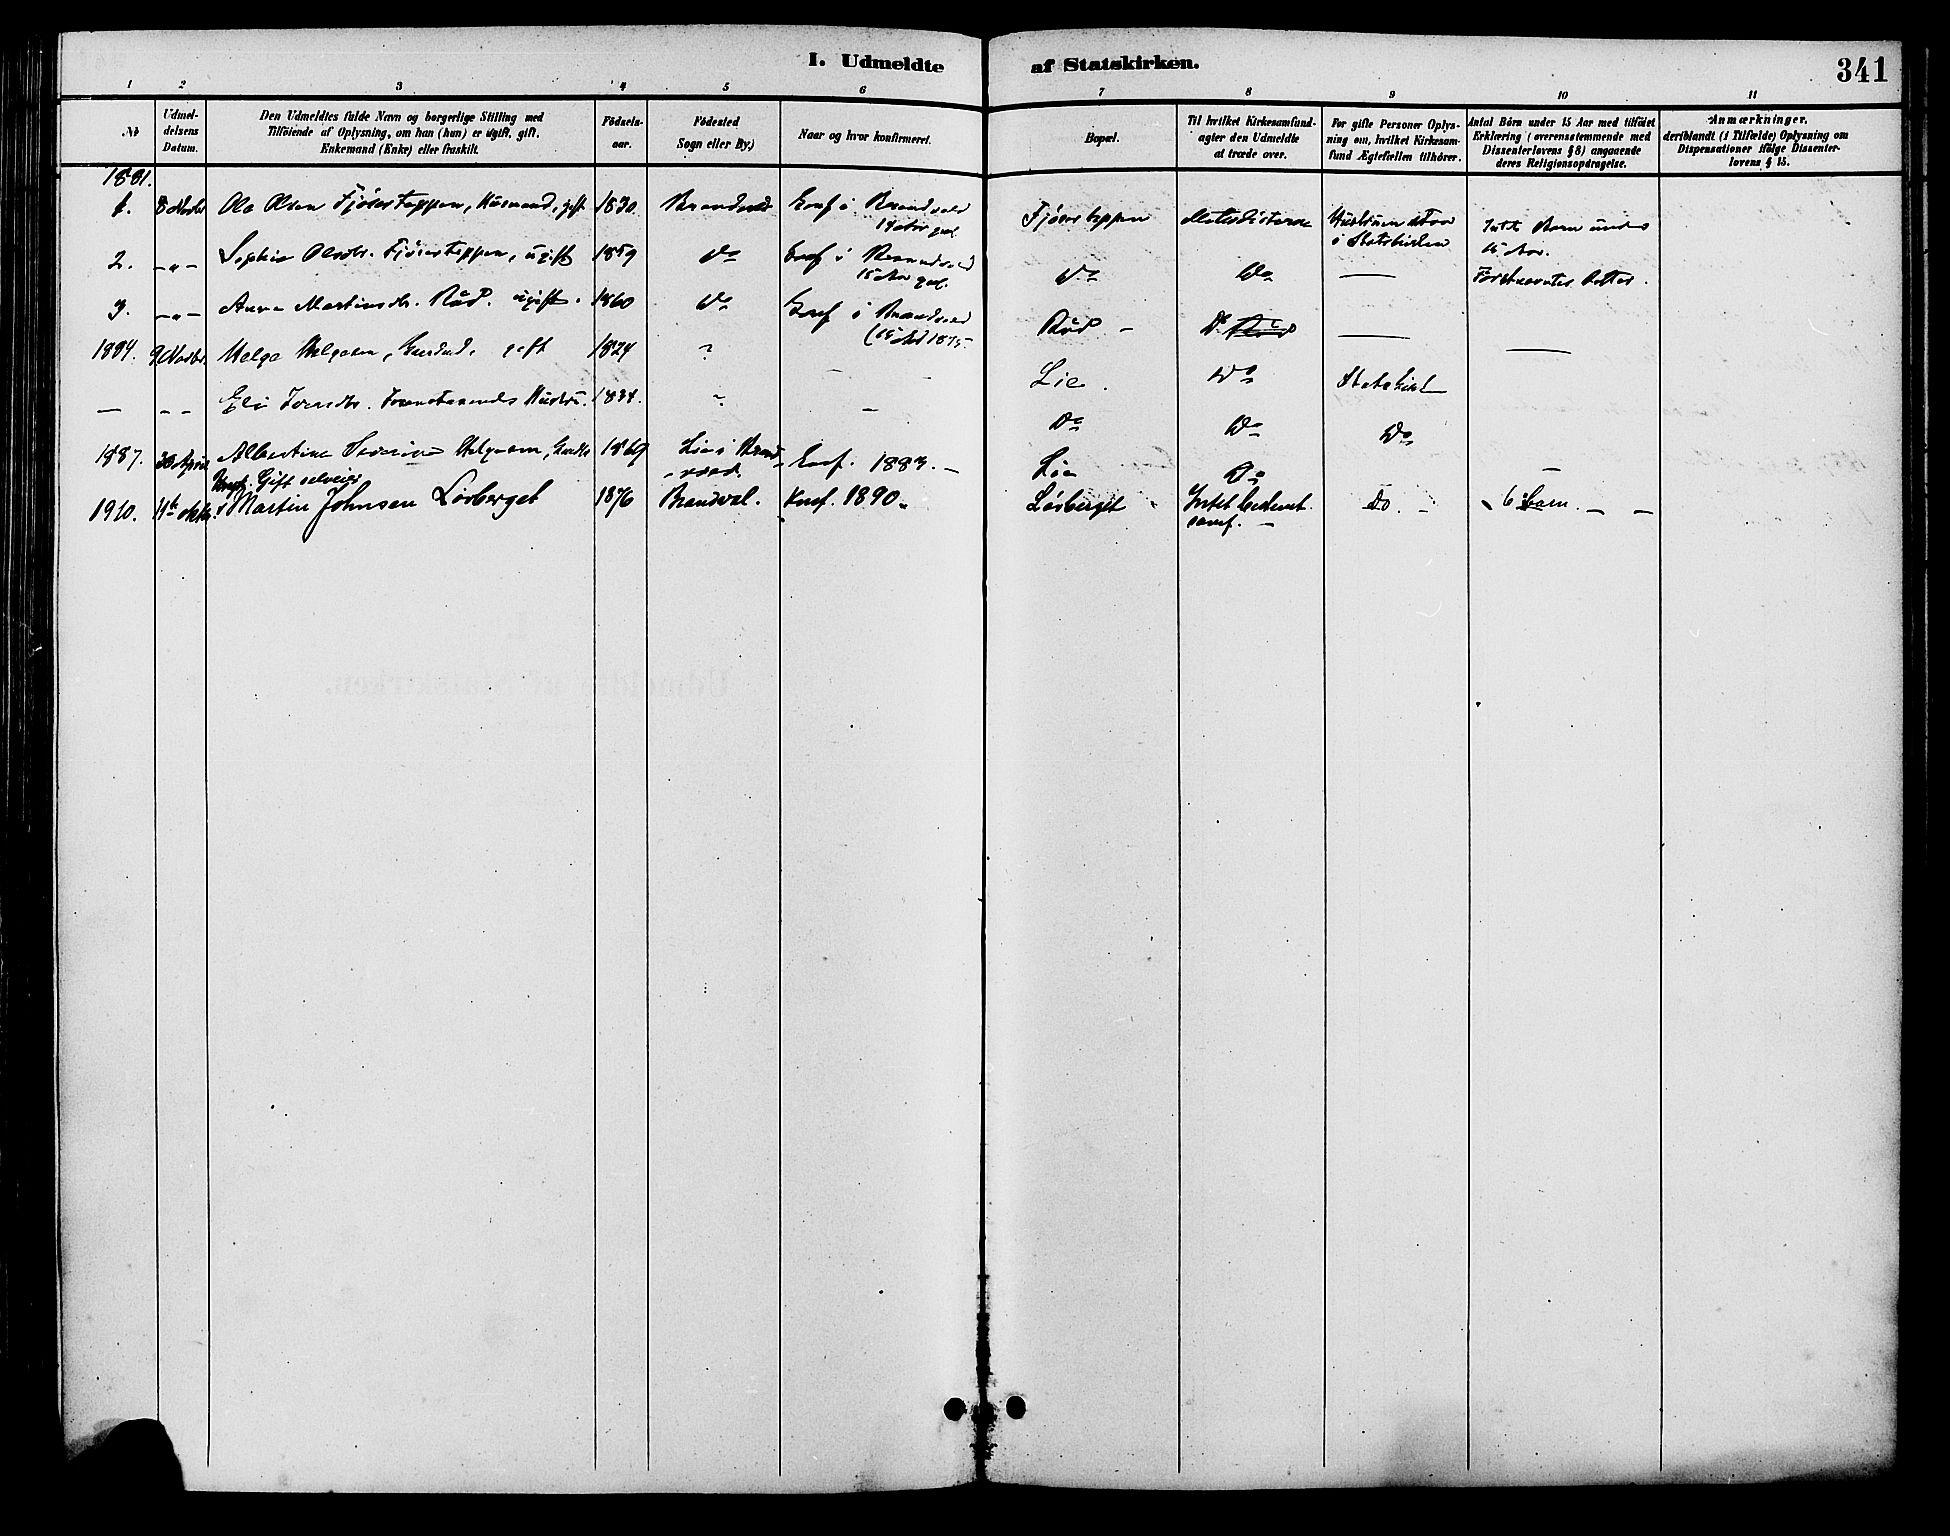 I. Udmeldte af Statskirken.
341
1 2 3 4 5 6 7 8 9 10 11
№
Udmeldelsens Datum.
Den Udmeldtes fulde Navn og borgerlige Stilling med
Tilføiende af Oplysning, om han (hun) er ugift, gift,
Enkemand (Enke) eller fraskilt.
Födselsaar.
Födested
Sogn eller By.)
Naar og hvor konfirmeret.
Bopæl.
Til hvilket Kirkesamfund
agter den Udmeldte
at træde over.
For gifte Personer Oplysning om, hvilket Kirkesamfund Ægtefællen tilhörer.
Antal Börn under 15 Aar med tilföiet
Erklæring (overensstemmende med
Dissenterlovens § 8) angaaende
deres Religionsopdragelse.
Anmærkninger,
deriblandt (i Tilfælde) Oplysning om
Dispensationer ifölge Dissenterlovens § 15.
1881.
1. 8 Novbr Ole Olsen Fjöserteppen, Husmand, gift 1830 Brandvold Conf i Brandvold Fjöserteppen Metodisterne Hustruen i Statskirken Intet Barn under
15 Aar.
2. -„- Sophie Olsdtr. Fjöserteppen, ugift 1859 do Conf i Brandvold
15 Aar gal. do do —
3. -„- Anne Martinsdtr. Rud. ugift. 1860 do Conf i Brandvold
(15 Aar 1875 Rud - do —
1884. 9 Novbr. Helge Helgesen, gift 1824 Lie. do Statskirk —
— - - Eli Hustru. 1834. — do do do
1887. Albertine Severine Helgesen, 1869 Lie i Brandvold. Conf. 1883. - Lie do —
Gift selveier
1910. 11te oktbr. Martin Johnsen Lövberget 1876 Brandval. Konf. 1890. Lövberget Intet bestemt
samf. - do - 6 barn. - -